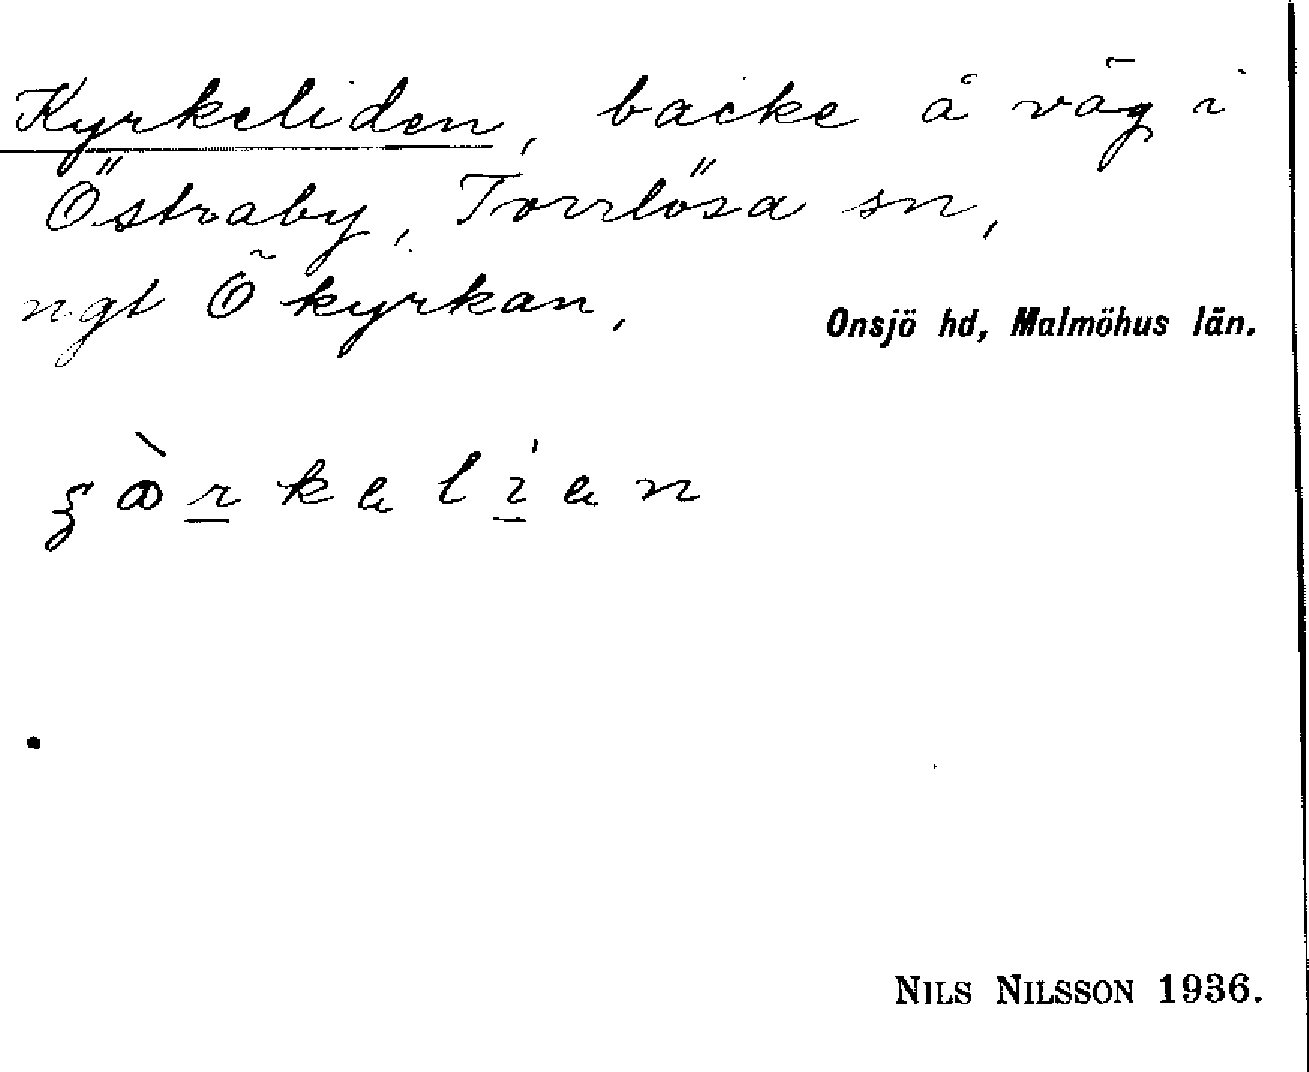 Kyrkeliden, backe å väg i
Östraby, Torrlösa sn,
ngt Ö kyrkan,
Onsjö hd, Malmöhus län.
NILS NILSSON 1936.